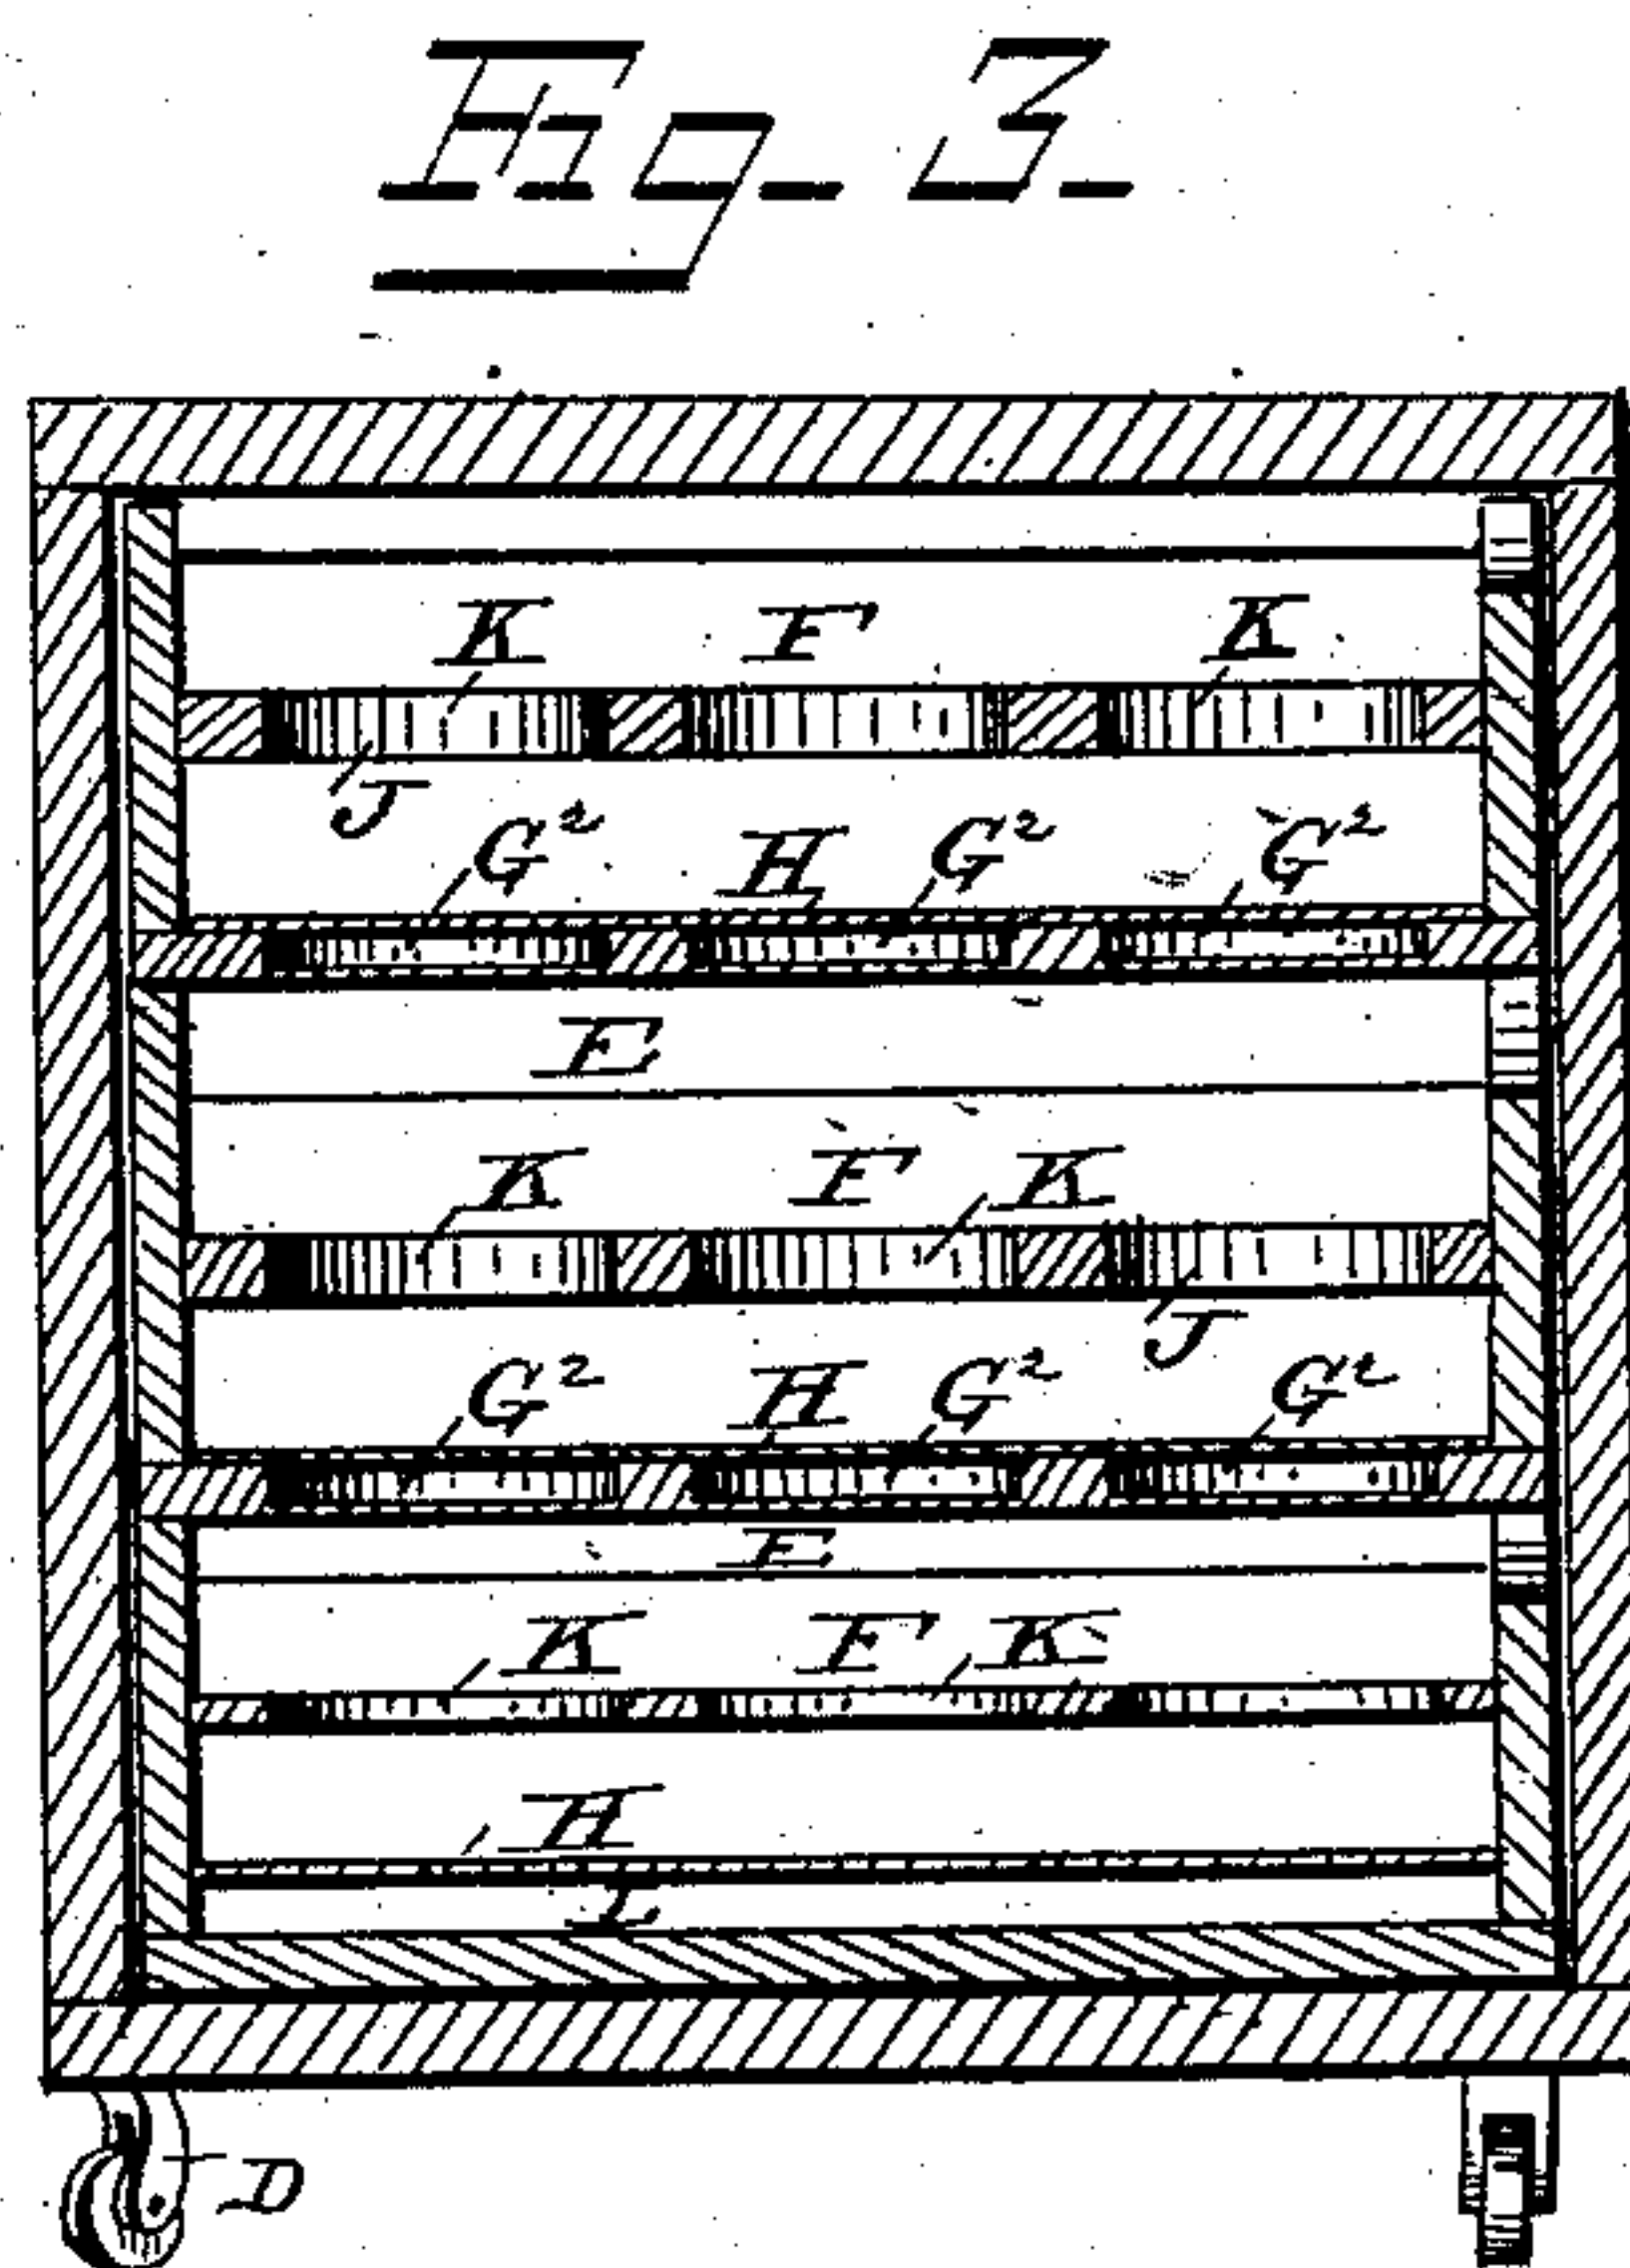 Fig. 3.
K F K
J
G² H G² G²
E
K F K
J
G² H G² G²
E
K F K
H
I
D